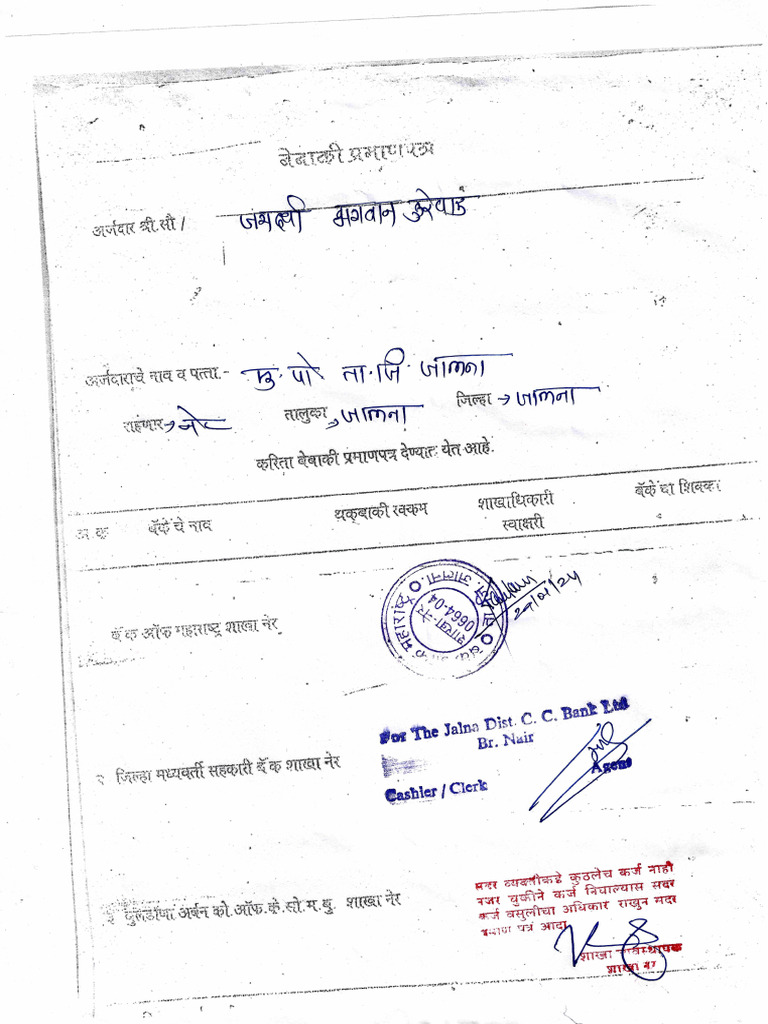 बेबाकी प्रमाणपत्र
अर्जदार श्री.सौ / जयश्री भगवान
अर्जदाराचे नाव व पत्ता.- मु. पो ता. जि. जालना
राहणार → नेर तालुका → जालना जिल्हा → जालना
करिता बेबाकी प्रमाणपत्र देण्यात येत आहे.
अ.क्र बॅंकेचे नाव थकबाकी रक्कम शाखाधिकारी स्वाक्षरी बॅंकेचा शिक्का
बॅंक ऑफ महाराष्ट्र शाखा नेर
शाखा-नेर
0664-04
जालना
२ जिल्हा मध्यवर्ती सहकारी बॅंक शाखा नेर
For The Jalna Dist. C. C. Bank Ltd
Br. Nair
Cashier / Clerk Agent
३ बुलडाणा अर्बन को.ऑफ.के.सो.म.बु. शाखा नेर
सदर व्यक्तीकडे कुठलेच कर्ज नाही
नजर चुकीने कर्ज निघाल्यास सदर
कर्ज वसुलीचा अधिकार राखुन सदर
प्रमाण पत्र आदा
शाखा व्यवस्थापक
शाखा नेर